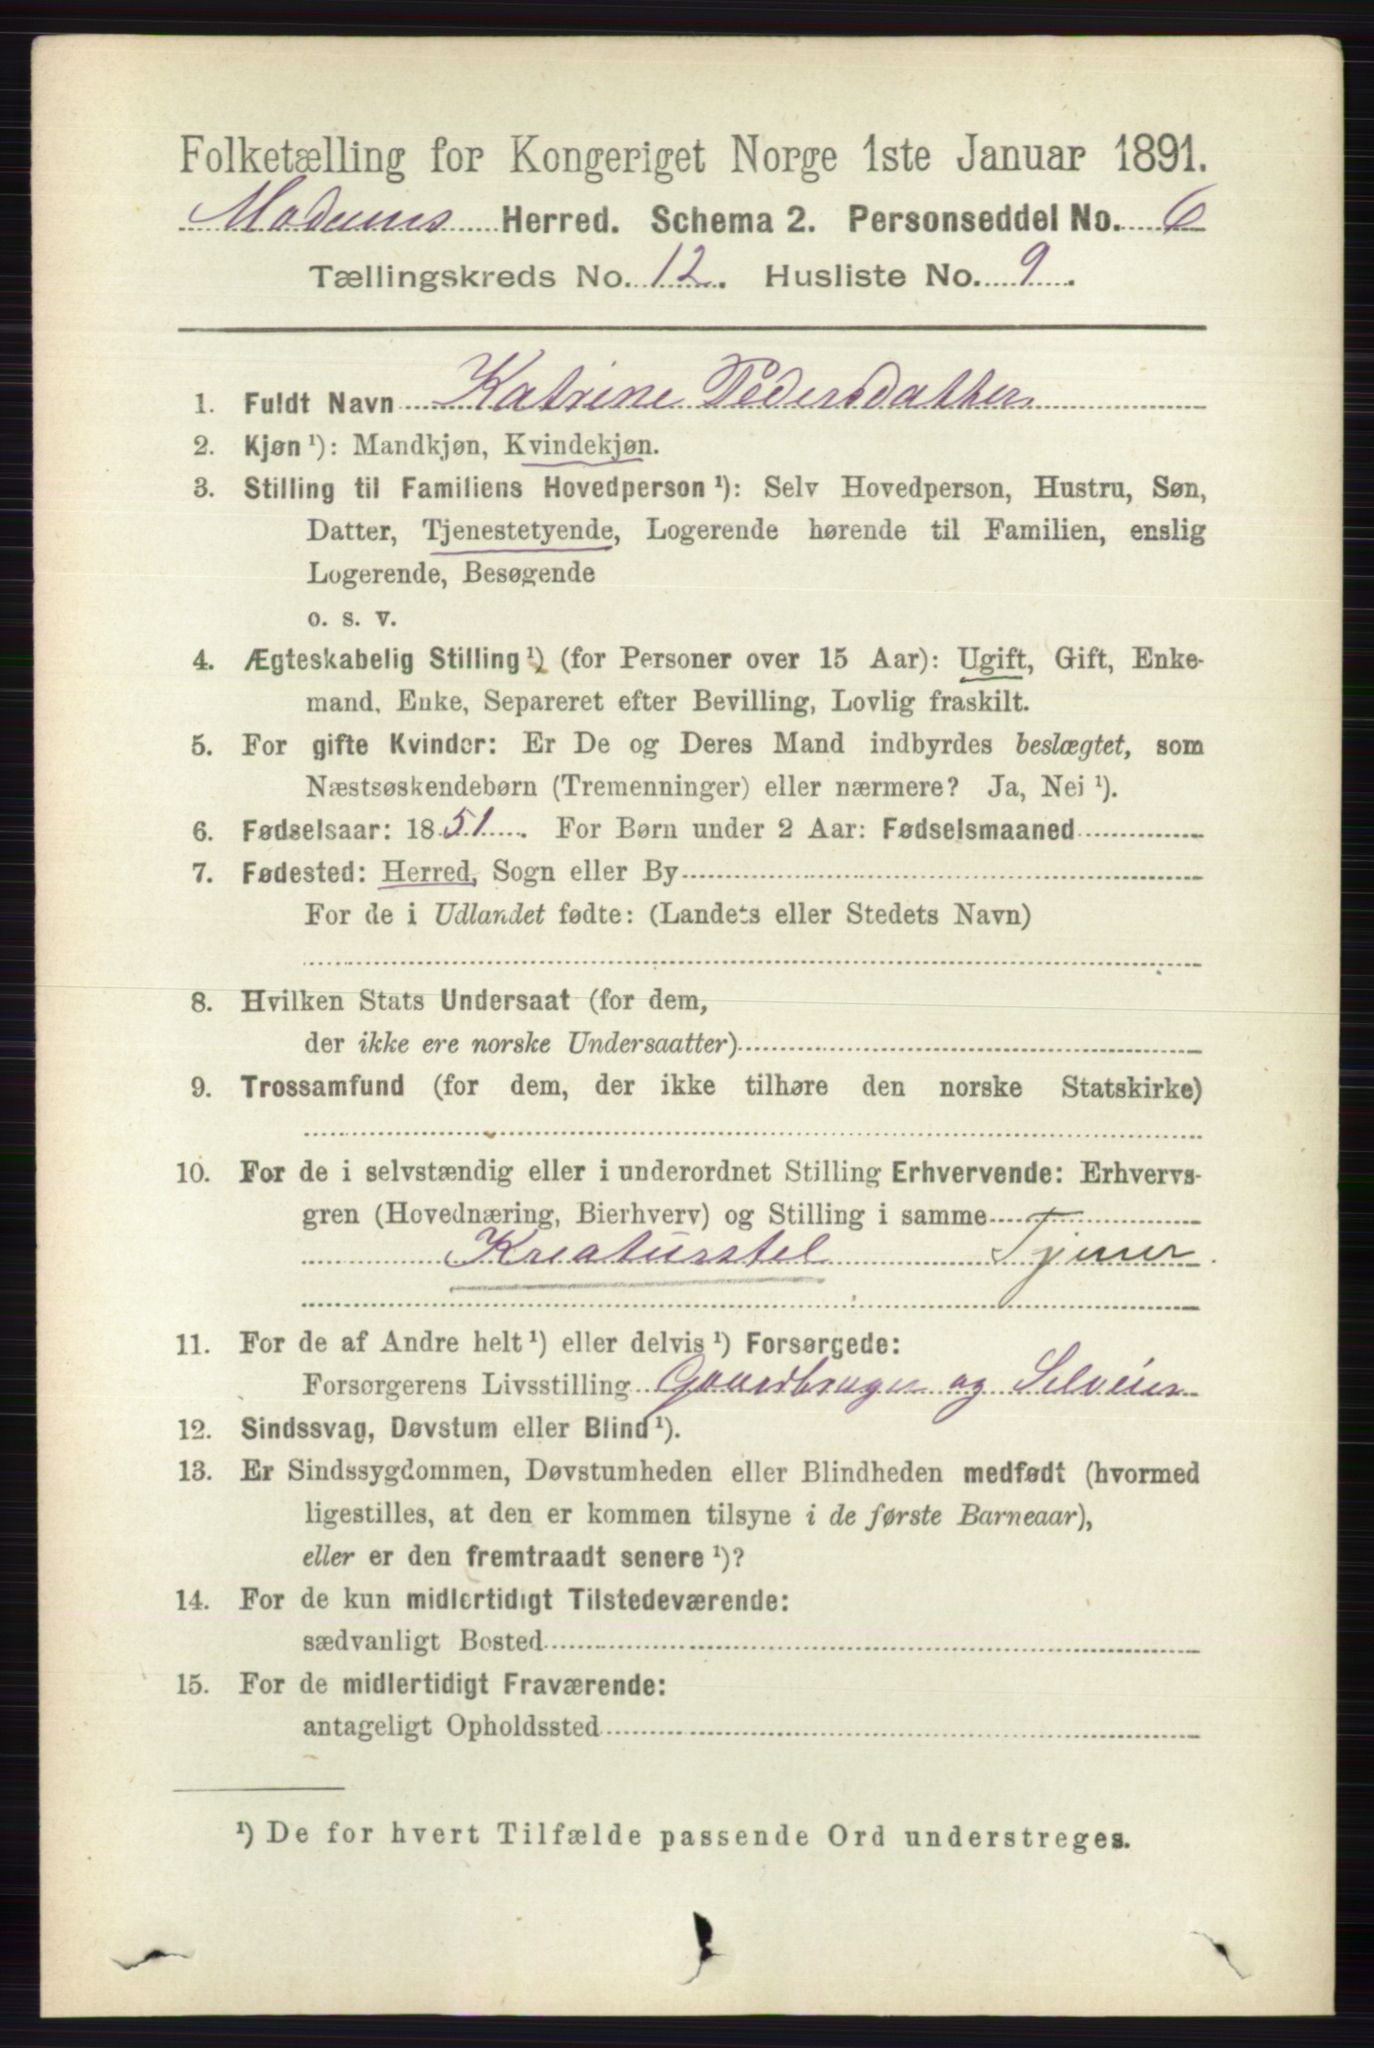 Folketælling for Kongeriget Norge 1ste Januar 1891.
Modums Herred. Schema 2. Personseddel No. 6
Tællingskreds No. 12. Husliste No. 9.
1. Fuldt Navn Katrine Pedersdatter
2. Kjøn ¹): Mandkjøn, Kvindekjøn.
3. Stilling til Familiens Hovedperson ¹): Selv Hovedperson, Hustru, Søn,
Datter, Tjenestetyende, Logerende hørende til Familien, enslig
Logerende, Besøgende
o. s. v.
4. Ægteskabelig Stilling ¹) (for Personer over 15 Aar): Ugift, Gift, Enke-
mand, Enke, Separeret efter Bevilling, Lovlig fraskilt.
5. For gifte Kvinder: Er De og Deres Mand indbyrdes beslægtet, som
Næstsøskendebørn (Tremenninger) eller nærmere? Ja, Nei ¹).
6. Fødselsaar: 1851. For Børn under 2 Aar: Fødselsmaaned
7. Fødested: Herred, Sogn eller By
For de i Udlandet fødte: (Landets eller Stedets Navn)
8. Hvilken Stats Undersaat (for dem,
der ikke ere norske Undersaatter)
9. Trossamfund (for dem, der ikke tilhøre den norske Statskirke)
10. For de i selvstændig eller i underordnet Stilling Erhvervende: Erhvervs-
gren (Hovednæring, Bierhverv) og Stilling i samme
Kreaturstel Tjener
11. For de af Andre helt ¹) eller delvis ¹) Forsørgede:
Forsørgerens Livsstilling Gaardbruger og Selveier
12. Sindssvag, Døvstum eller Blind ¹).
13. Er Sindssygdommen, Døvstumheden eller Blindheden medfødt (hvormed
ligestilles, at den er kommen tilsyne i de første Barneaar),
eller er den fremtraadt senere ¹)?
14. For de kun midlertidigt Tilstedeværende:
sædvanligt Bosted
15. For de midlertidigt Fraværende:
antageligt Opholdssted
¹) De for hvert Tilfælde passende Ord understreges.